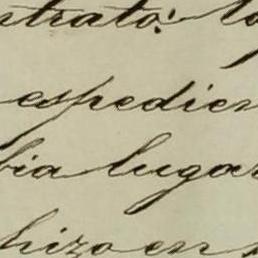 ntrato: lo
espedien
bia lugar
hizo en